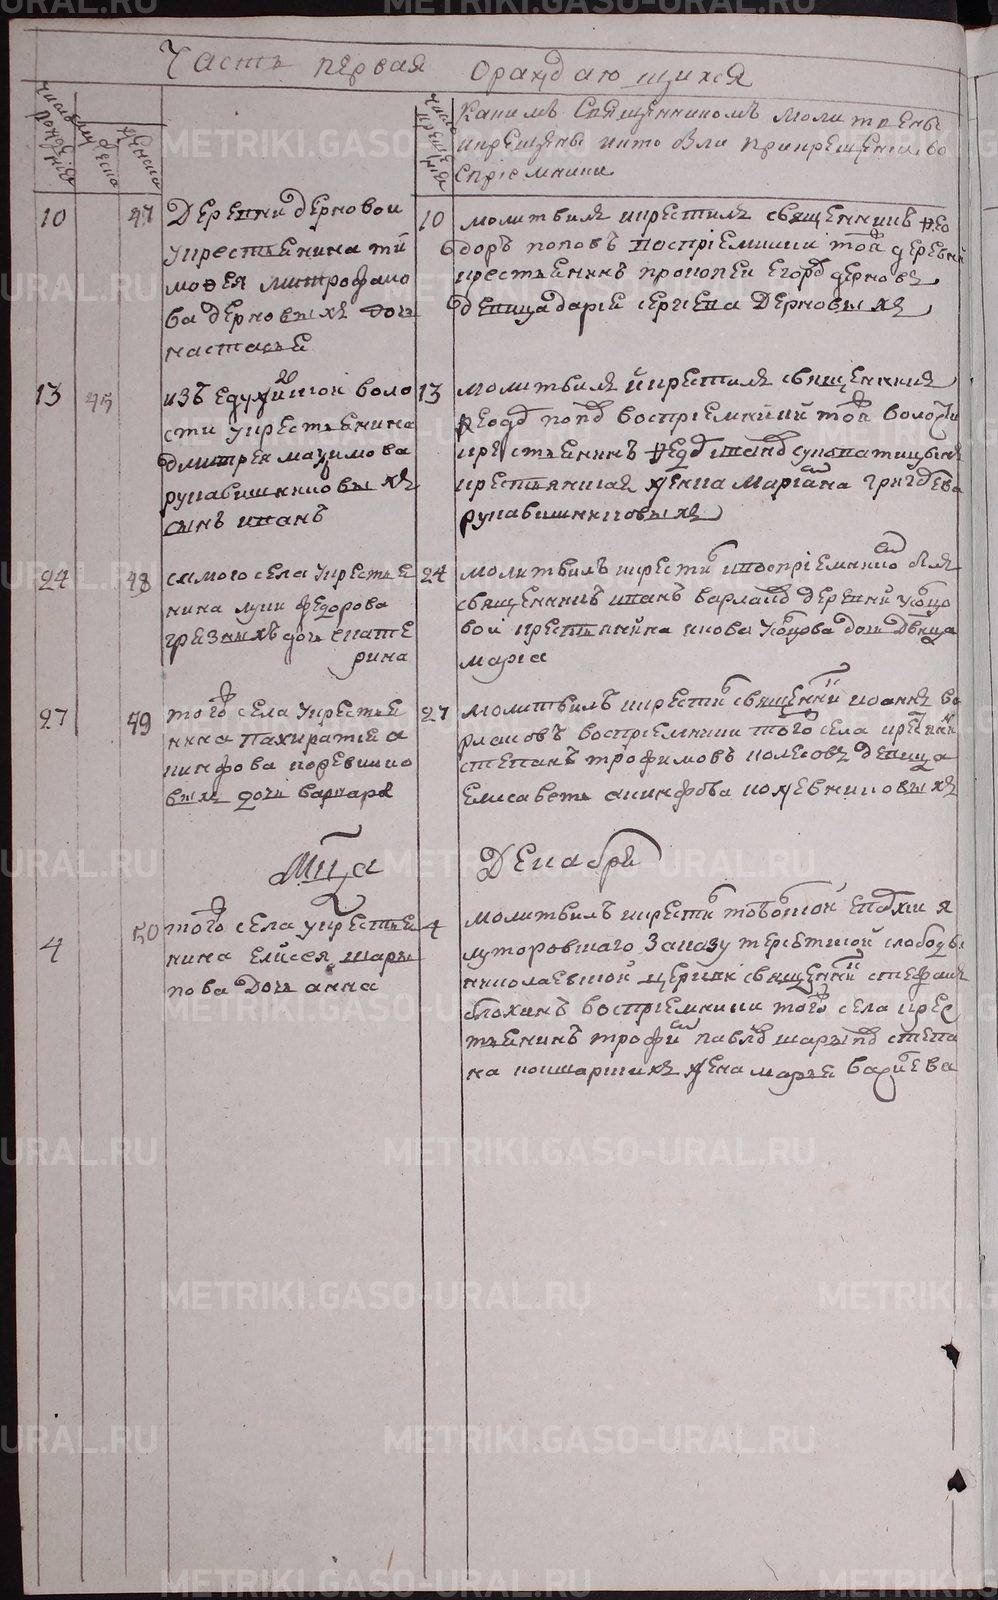 METRIKI.GASO-URAL.RU
Часть первая ораждающихся
число рождения
женска
число крещения
Каким Священником молитвены
и крещены и кто были при крещении во
спріемники
10 47 Деревни дерновои
у крестьенина ти
мофея митрофано
ва дерновыхъ дочь
настасье
10 молитвилъ и крестилъ священникъ Фео
доръ поповъ воспріемники той деревни
крестьенинъ прокопеи Егоровъ дерновъ
девица дарьи сергиева Дерновыхъ
13 45
сти у крестьенина
дмитрея мазимова
рукавишниковыхъ
сынъ иванъ
13 молитвилъ и крестилъ священник
Феод попов воспріемники той волости
крестьенинъ
крестьянская жена Мариана григорева
рукавишниковыхъ
24 48 самого села у крестье
нина луки федорова
грезныхъ дочь екате
рина
24 молитвилъ и крести и воспріемникомъ былъ
священникъ иванъ варламовъ деревни
вой крестьянина дочь девица
мариа
27 49 того села у крестье
нина
кинфова кожевнико
выхъ дочь варвара
27 молитвилъ и крести священник иоаннъ ва
рламовъ воспріемники того села
степанъ трофимовъ колесовъ девица
Елисаветъ акинфова кожевниковыхъ
Мца Декабря
4 50 того села у крестье
нина Елисея шары
пова дочь анна
4 молитвилъ и крести тобольской епархии я
луторовшаго Заказу терсетцкой слободы
николаевской церкви священник стефанъ
блохинъ воспріемники того села крес
тьенинъ трофим павлов шарыпов степа
на жена марьи
METRIKI.GASO-URAL.RU